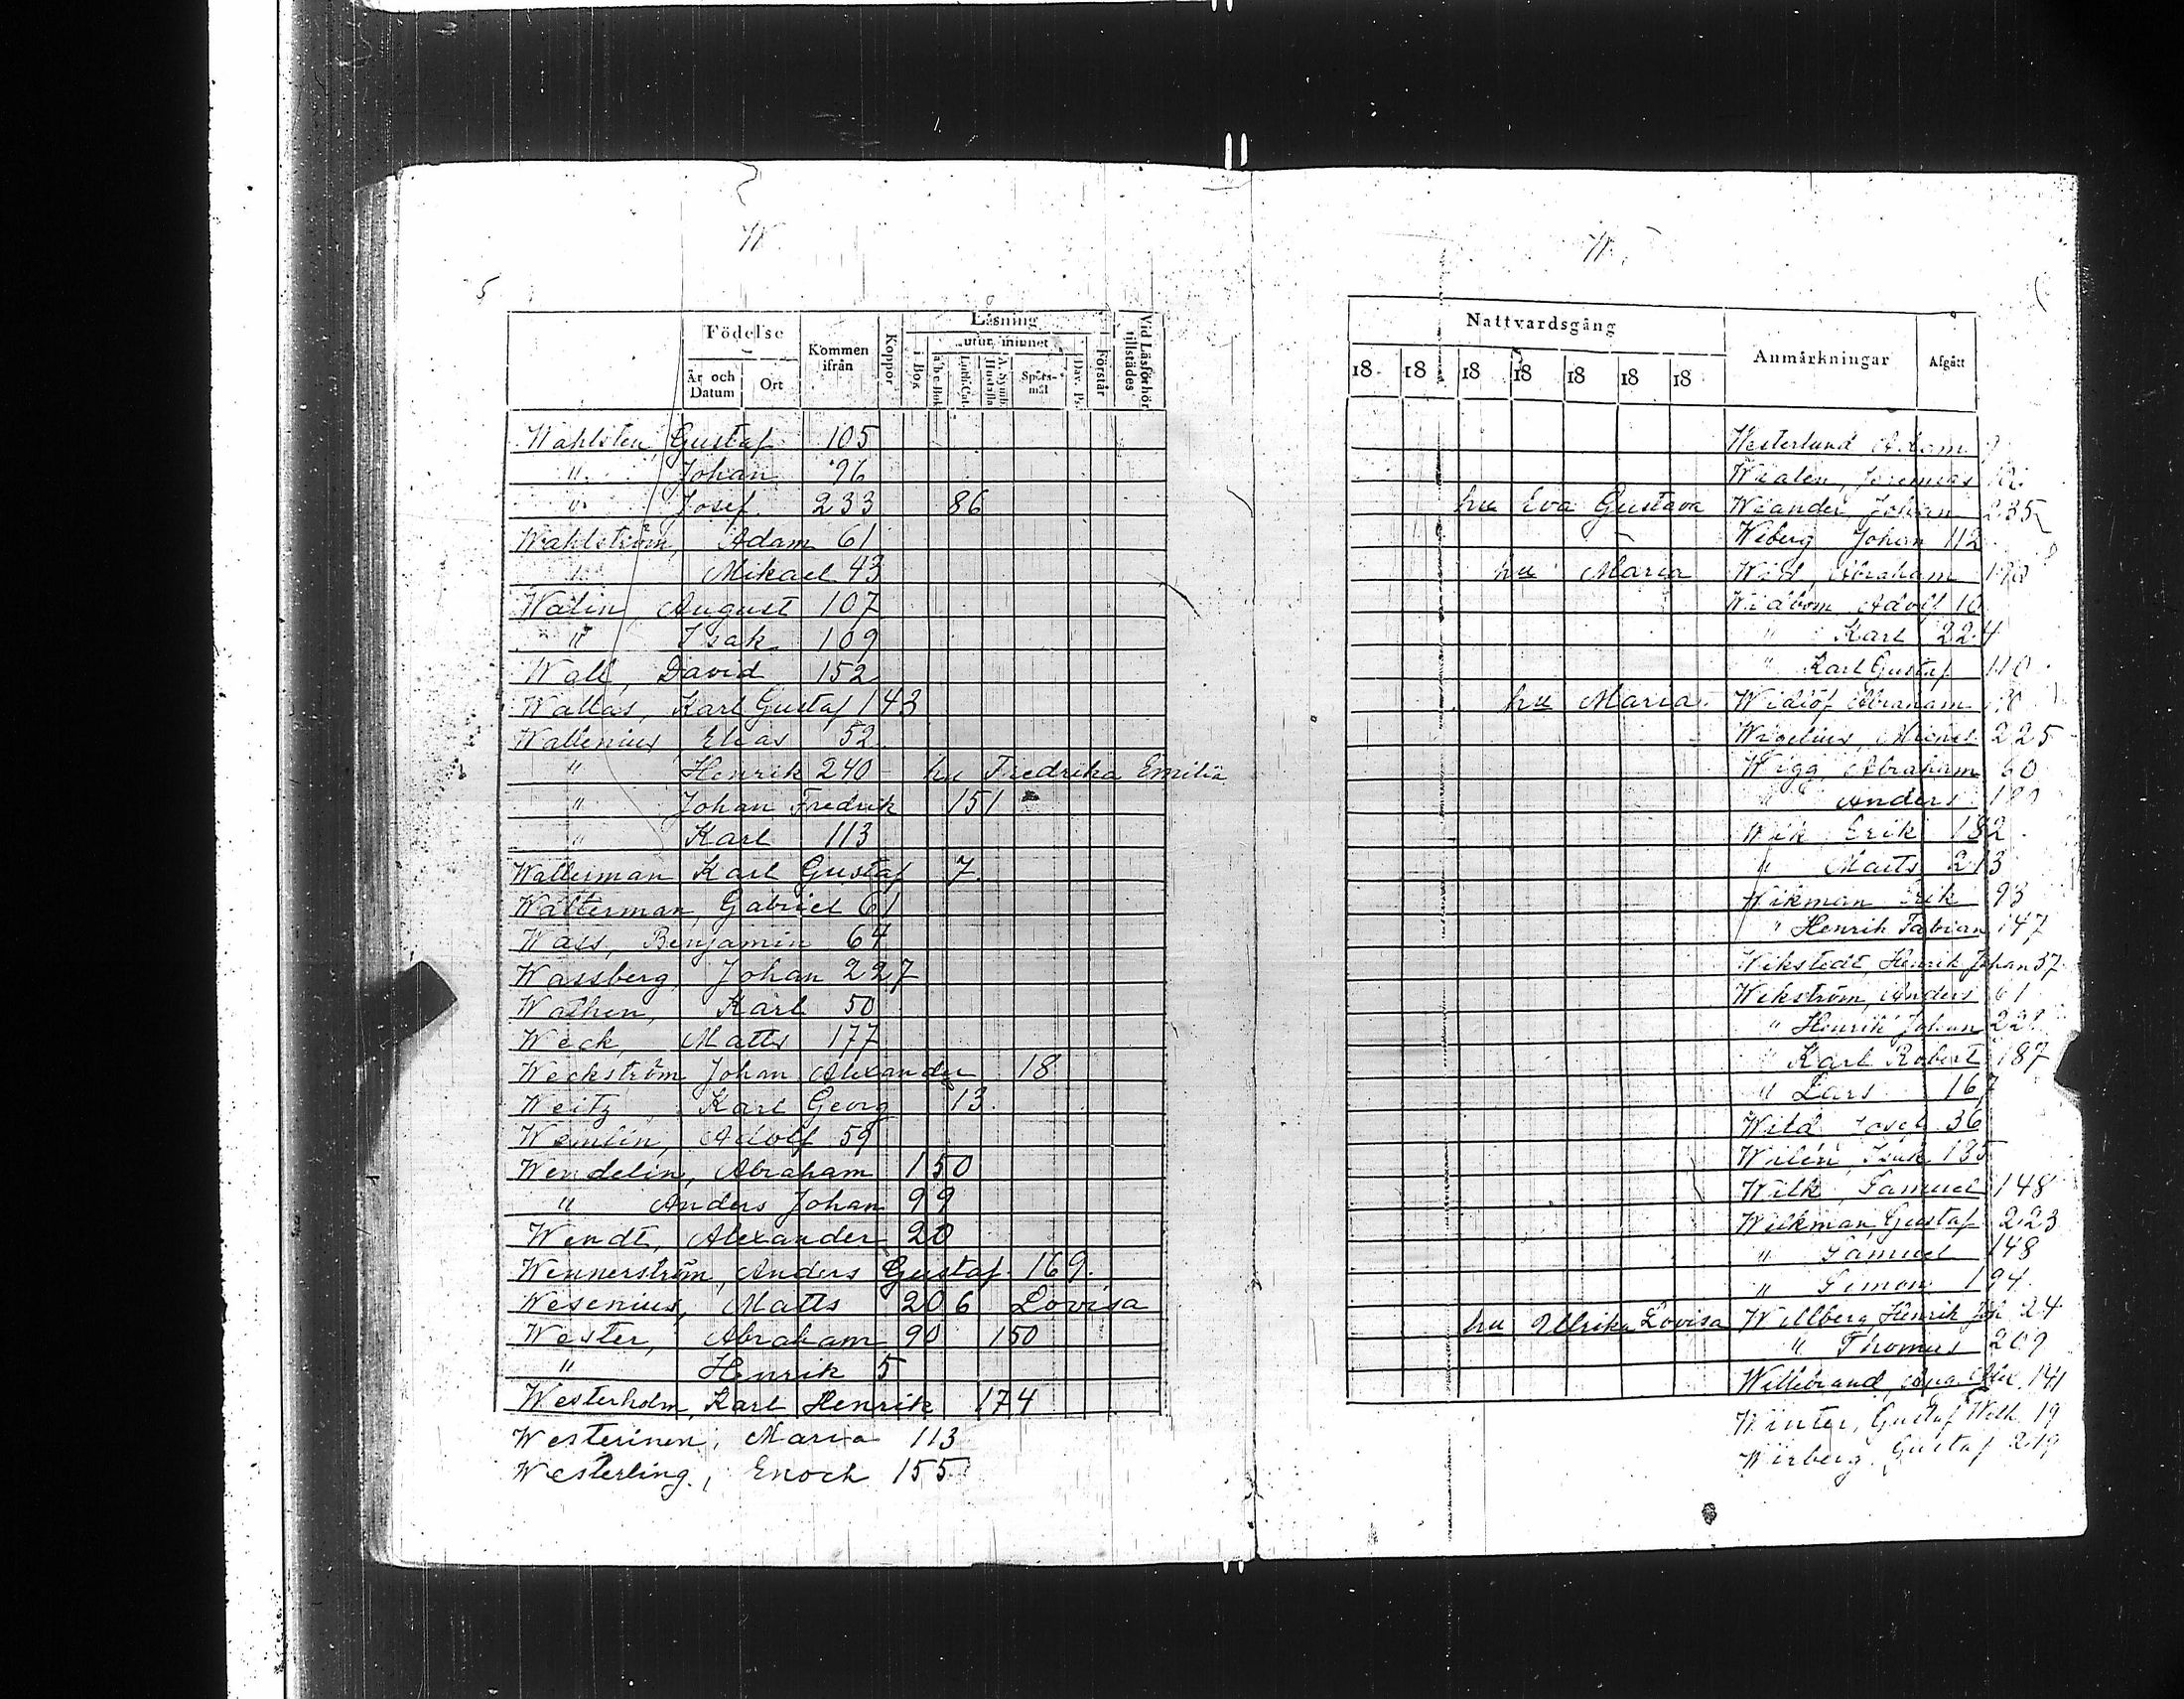 W.
5
Födelse
Kommen ifrån
Koppor
Läsning
utur minnet
i Bok
a b c Bok
Luth. Cat.
A. Symb. Hustafla
Spörs-mål
Dav. Ps.
Förstår
Vid Läsförhör tillstädes
År och Datum
Ort
Wahlsten, Gustaf 105
" Johan 96
" Josef 233 86
Wahlström, Adam 61
" Mikael 43
Walin August 107
" Isak 109
Wall, David 152
Wallas, Karl Gustaf 143
Wallenius Elias 52
" Henrik 240 hu Fredrika Emilia
" Johan Fredrik 151
" Karl 113
Wallerman Karl Gustaf 7.
Walterman, Gabriel 61
Wass, Benjamin 64
Wassberg Johan 227
Wathen, Karl 50
Weck, Matts 177
Weckström Johan Alexander 18
Weitz Karl Georg 13.
Wemlin, Adolf 59
Wendelin, Abraham 150
" Anders Johan 99
Wendt, Alexander 20
Wennerström, Anders Gustaf 169.
Wesenius, Matts 206 Lovisa
Wester, Abraham 90 150
" Henrik 5
Westerholm, Karl Henrik 174
Westerinen, Maria 113
Westerling, Enoch 155
W.
Nattvardsgång
Anmärkningar
Afgått
18 18 18 18 18 18 18
Westerlund Adam
Wialen, Jeremias
hu Eva Gustava Wiander, Johan 235
Wiberg Johan 112
hu Maria Abraham
Widbom Adolf 10
" Karl 224
" Karl Gustaf 110
hu Maria Widlöf Abraham
Wigelius, Michel 225
Wigg Abraham 60
" Anders
Wik Erik 182
" Matts 213
Wikman Erik 93
" Henrik Fabian 147
Wikstedt, Henrik Johan 37
Wikström, Anders 61
" Henrik Johan
" Karl Robert 187
" Lars 167
Wild Josef 36
Wilén Isak 135
Wilk, Samuel 148
Wilkman, Gustaf 223
" Samuel 148
" Simon 194
hu Ulrika Lovisa Willberg Henrik Joh 24
" Thomas 209
Willebrand, Alex. 141
Winter, Gustaf Wilh. 19
Wirberg, Gustaf 219